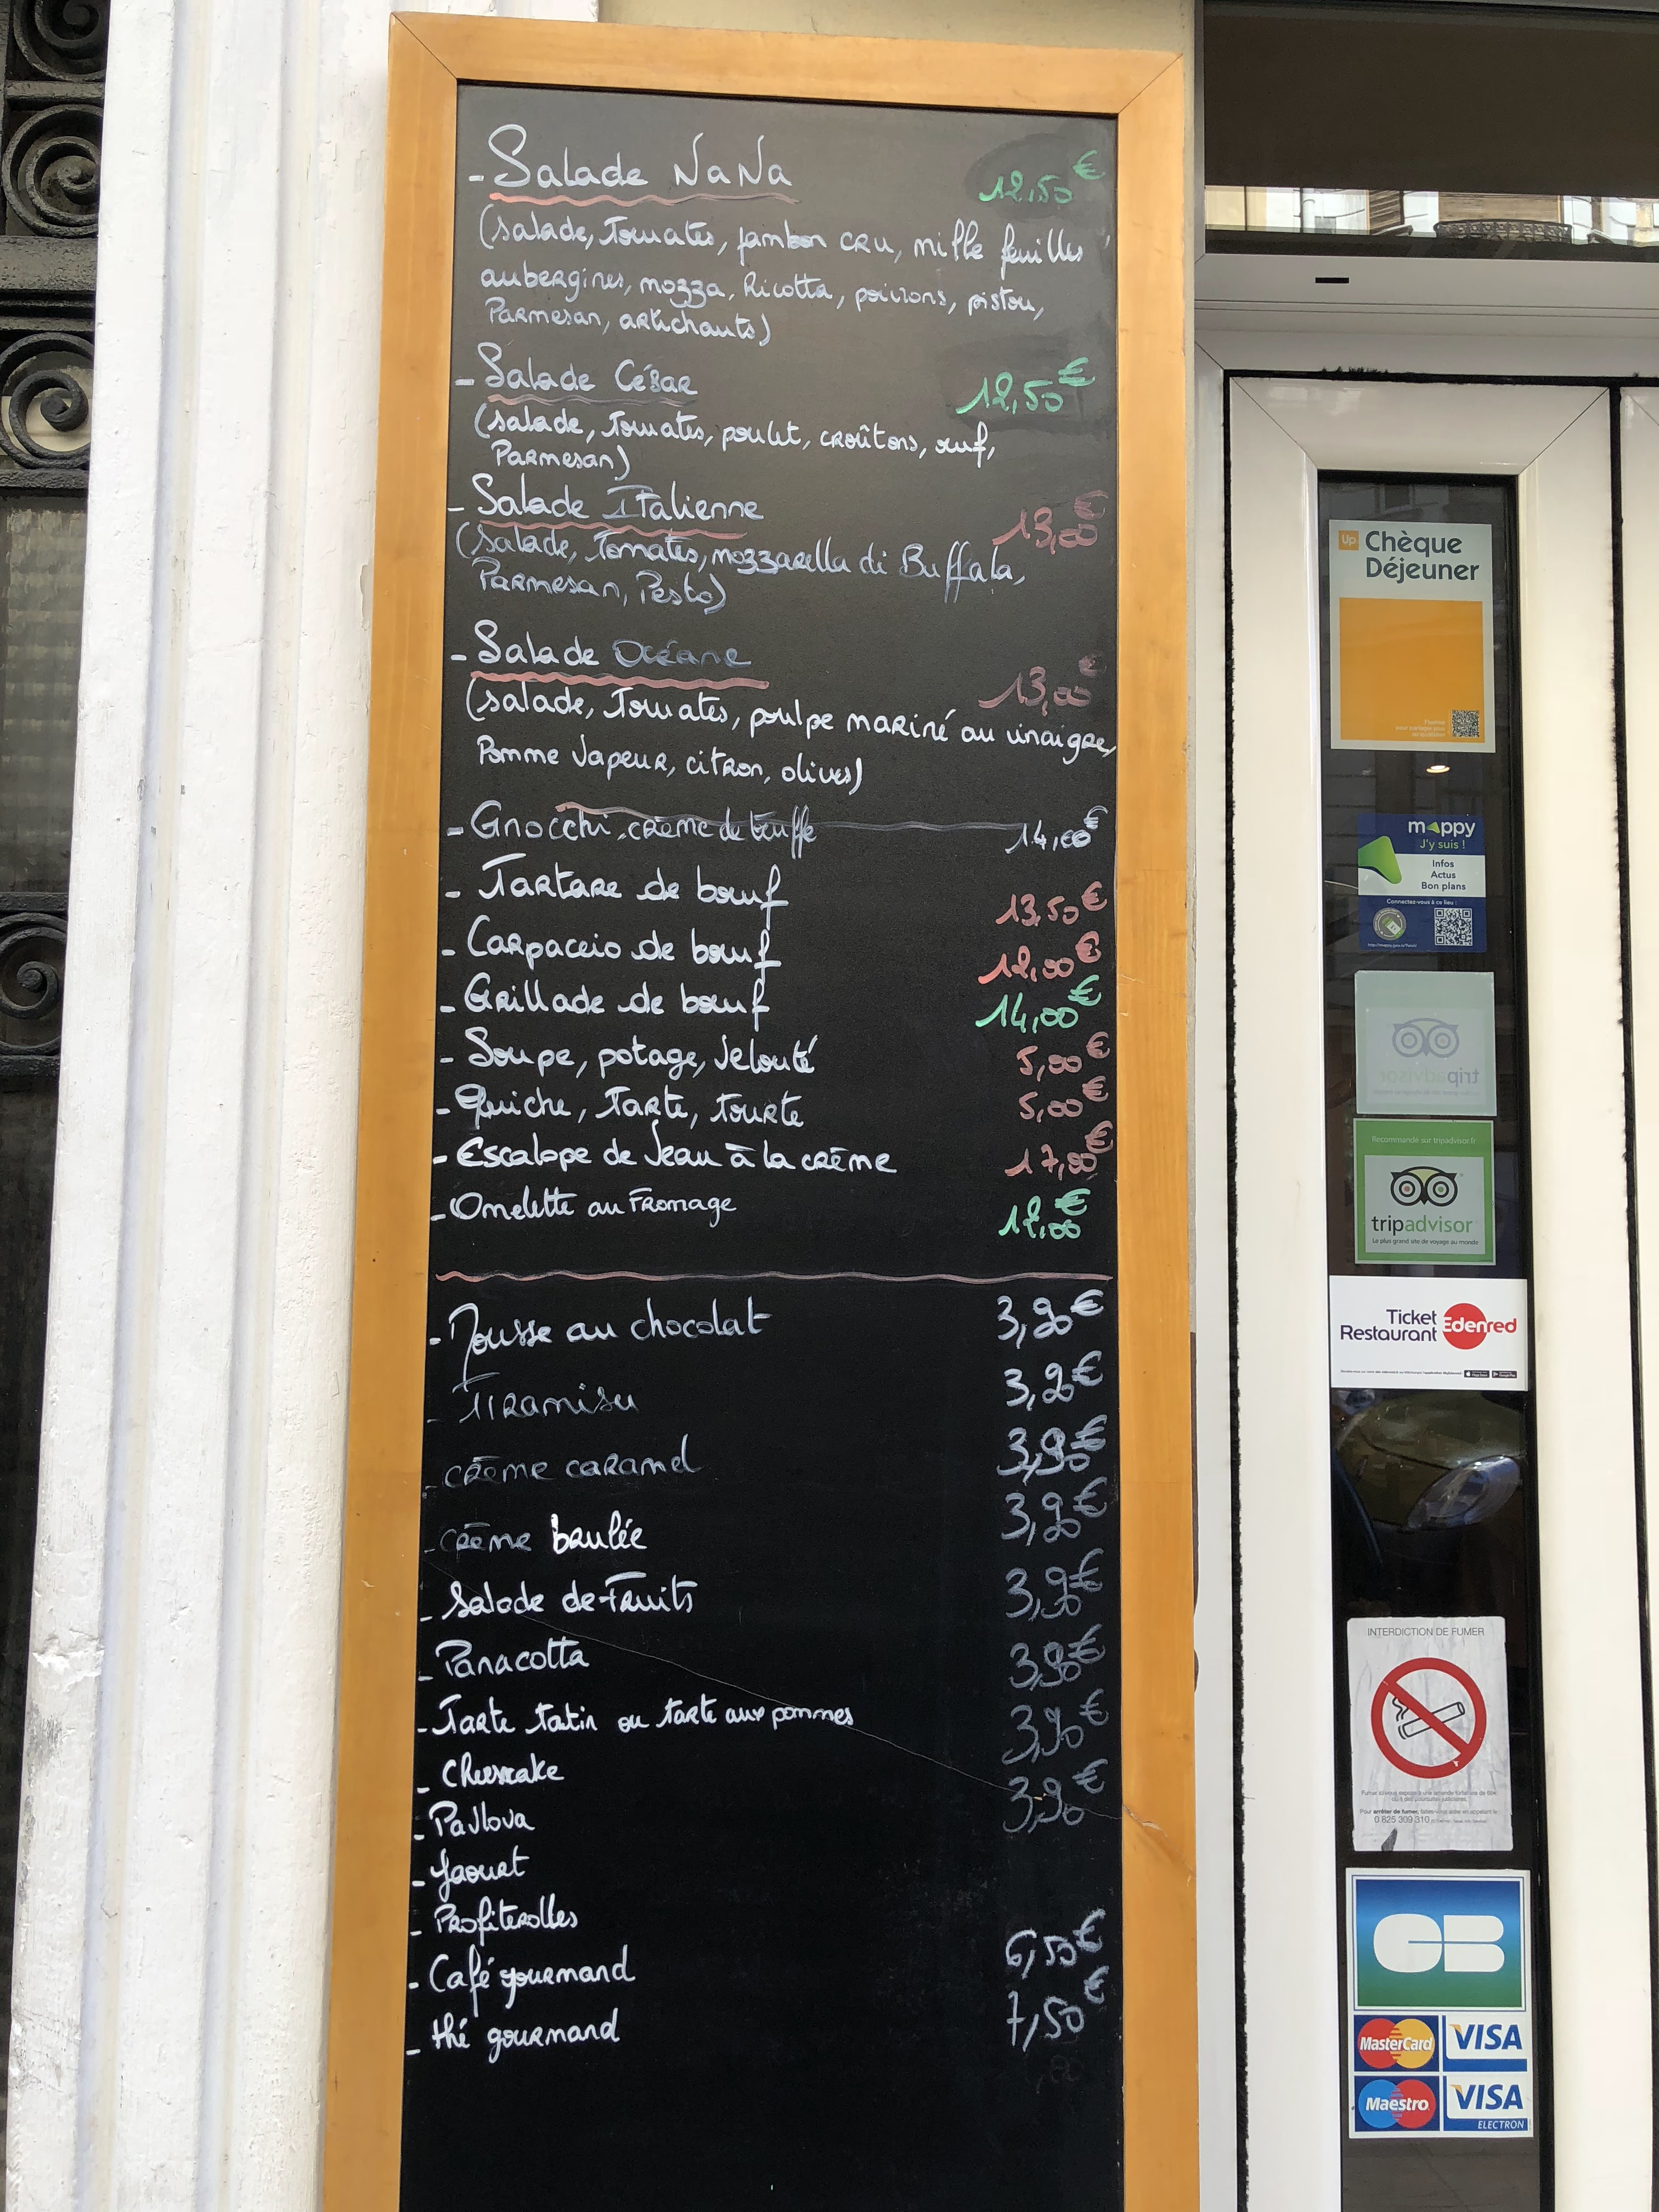 - Salade NaNa 12,50€
(salade, Tomates, jambon cru, mille feuilles
aubergines, mozza, Ricotta, poivrons, pistou,
Parmesan, artichauts)
- Salade César 12,50€
(salade, Tomates, poulet, croûtons, œuf,
Parmesan)
- Salade Italienne 13,00€
(Salade, Tomates, mozzarella di Buffala,
Parmesan, Pesto)
- Salade Océane 13,00€
(salade, Tomates, poulpe mariné au vinaigre,
Pomme vapeur, citron, olives)
- Gnocchi, crème de truffe 14,00€
- Tartare de bœuf 13,50€
- Carpaccio de bœuf 12,00€
- Grillade de bœuf 14,00€
- Soupe, potage, velouté 5,00€
- Quiche, Tarte, Tourte 5,00€
- Escalope de veau à la crème 17,00€
- Omelette au Fromage 12,00€
- Mousse au chocolat 3,90€
- Tiramisu 3,90€
- crème caramel 3,90€
- crème brulée 3,90€
- Salade de Fruits 3,90€
- Panacotta 3,90€
- Tarte tatin ou tarte aux pommes 3,90€
- Cheescake 3,90€
- Pavlova
- Yaourt
- Profiterolles
- Café gourmand 6,50€
- thé gourmand 7,50€
Up Chèque
Déjeuner
mappy
J'y suis !
Infos
Actus
Bon plans
Connectez-vous à ce lieu :
tripadvisor
Recommandé sur tripadvisor.fr
tripadvisor
Le plus grand site de voyage au monde
Ticket
Restaurant Edenred
INTERDICTION DE FUMER
0 825 309 310
CB
MasterCard VISA
Maestro VISA
ELECTRON